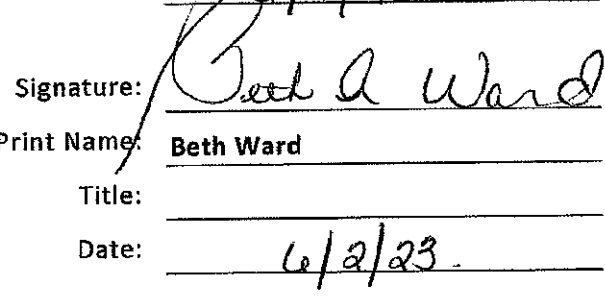 Signature: Beth A Ward
Print Name: Beth Ward
Title:
Date: 6/2/23.